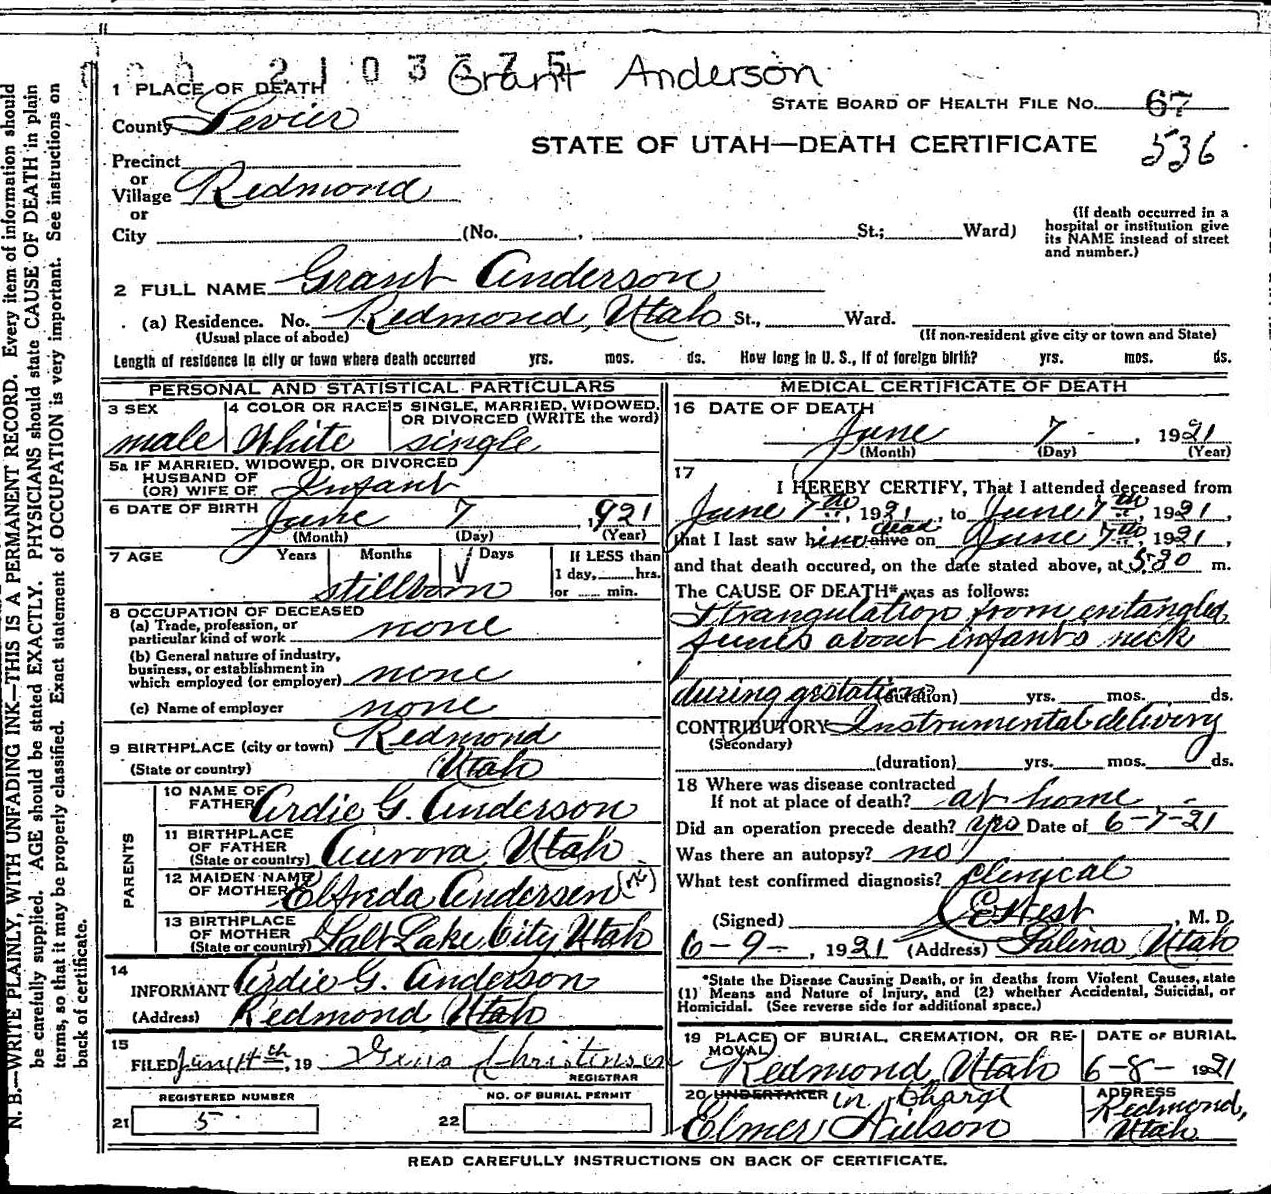 2103375
Grant Anderson
1 PLACE OF DEATH
STATE BOARD OF HEALTH FILE No. 67
County Sevier
STATE OF UTAH—DEATH CERTIFICATE
536
Precinct
or
Village Redmond
or
City (No. , St.; Ward)
(If death occurred in a
hospital or institution give
its NAME instead of street
and number.)
2 FULL NAME Grant Anderson
(a) Residence. No. Redmond, Utah St., Ward.
(Usual place of abode) (If non-resident give city or town and State)
Length of residence in city or town where death occurred yrs. mos. ds. How long in U. S., if of foreign birth? yrs. mos. ds.
PERSONAL AND STATISTICAL PARTICULARS
3 SEX
male
4 COLOR OR RACE
White
5 SINGLE, MARRIED, WIDOWED,
OR DIVORCED (WRITE the word)
single
5a IF MARRIED, WIDOWED, OR DIVORCED
HUSBAND OF
(OR) WIFE OF Infant
6 DATE OF BIRTH June 7, 1921
(Month) (Day) (Year)
7 AGE Years Months Days If LESS than
1 day, hrs.
or min.
stillborn
8 OCCUPATION OF DECEASED
(a) Trade, profession, or
particular kind of work none
(b) General nature of industry,
business, or establishment in
which employed (or employer) none
(c) Name of employer none
9 BIRTHPLACE (city or town) Redmond
(State or country) Utah
PARENTS
10 NAME OF
FATHER Ardie G. Anderson
11 BIRTHPLACE
OF FATHER
(State or country) Aurora, Utah
12 MAIDEN NAME
OF MOTHER Elfreda Andersen
13 BIRTHPLACE
OF MOTHER
(State or country) Salt Lake City, Utah
14
INFORMANT Ardie G. Anderson
(Address) Redmond, Utah
15
FILED 14th, 19 Christensen
REGISTRAR
REGISTERED NUMBER
21 5
NO. OF BURIAL PERMIT
22
MEDICAL CERTIFICATE OF DEATH
16 DATE OF DEATH
June 7, 1921
(Month) (Day) (Year)
17
I HEREBY CERTIFY, That I attended deceased from
June 7th, 1921, to June 7th, 1921,
that I last saw him alive dead on June 7th, 1921,
and that death occured, on the date stated above, at 5:30 m.
The CAUSE OF DEATH* was as follows:
Strangulation from entangled
funes about infants neck
during gestation (duration) yrs. mos. ds.
CONTRIBUTORY Instrumental delivery
(Secondary)
(duration) yrs. mos. ds.
18 Where was disease contracted
If not at place of death? at home
Did an operation precede death? yes Date of 6-7-21
Was there an autopsy? no
What test confirmed diagnosis? clinical
(Signed) E West, M. D.
6-9-, 1921 (Address) Salina, Utah
*State the Disease Causing Death, or in deaths from Violent Causes, state
(1) Means and Nature of Injury, and (2) whether Accidental, Suicidal, or
Homicidal. (See reverse side for additional space.)
19 PLACE OF BURIAL, CREMATION, OR RE-
MOVAL
Redmond, Utah
DATE OF BURIAL
6-8- 1921
20 UNDERTAKER in charge
Elmer Nielson
ADDRESS
Redmond,
Utah
READ CAREFULLY INSTRUCTIONS ON BACK OF CERTIFICATE.
N. B.—WRITE PLAINLY, WITH UNFADING INK—THIS IS A PERMANENT RECORD. Every item of information should
be carefully supplied. AGE should be stated EXACTLY. PHYSICIANS should state CAUSE OF DEATH in plain
terms, so that it may be properly classified. Exact statement of OCCUPATION is very important. See instructions on
back of certificate.